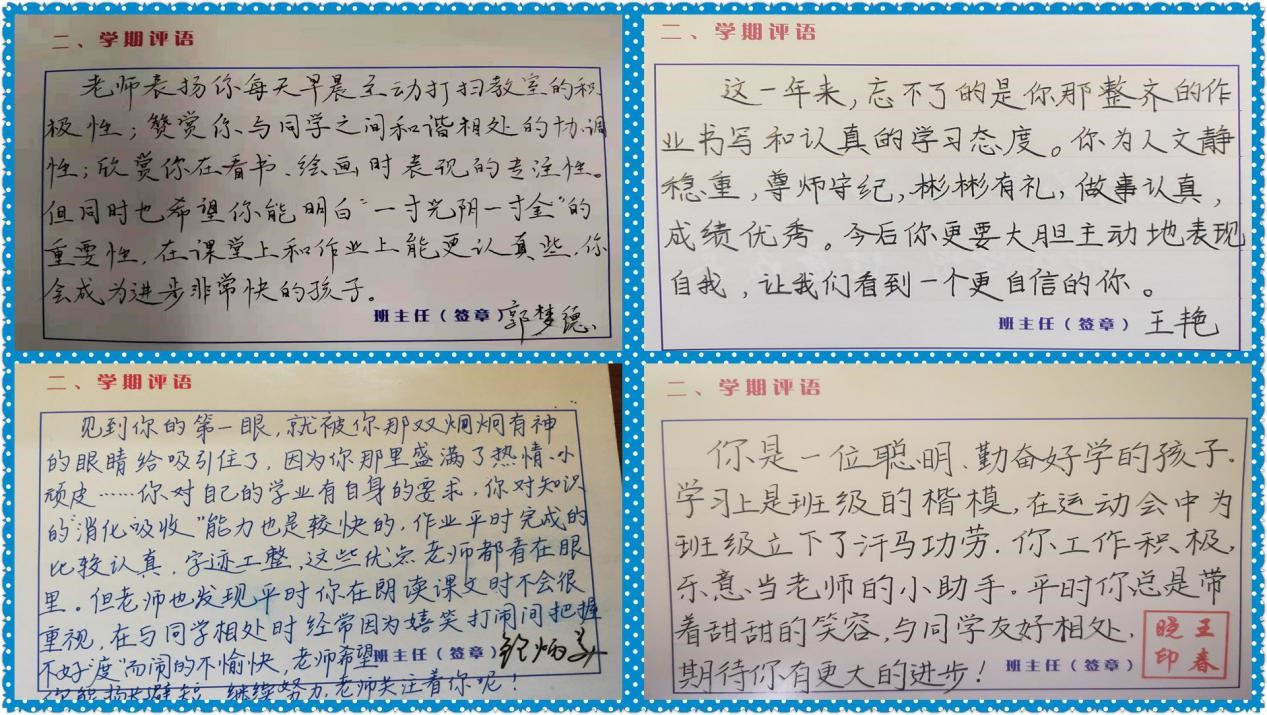 二、学期评语
老师表扬你每天早晨主动打扫教室的积
极性；赞赏你与同学之间和谐相处的协调
性；欣赏你在看书、绘画时表现的专注性。
但同时也希望你能明白“一寸光阴一寸金”的
重要性，在课堂上和作业上能更认真些，你
会成为进步非常快的孩子。
班主任（签章）郭梦德
二、学期评语
这一年来，忘不了的是你那整齐的作
业书写和认真的学习态度。你为人文静
稳重，尊师守纪，彬彬有礼，做事认真，
成绩优秀。今后你更要大胆主动地表现
自我，让我们看到一个更自信的你。
班主任（签章）王艳
二、学期评语
见到你的第一眼，就被你那双炯炯有神
的眼睛给吸引住了，因为你那里盛满了热情、小
顽皮……你对自己的学业有自身的要求，你对知识
的“消化吸收”能力也是较快的，作业平时完成的
比较认真，字迹工整，这些优点老师都看在眼
里。但老师也发现平时你在朗读课文时不会很
重视，在与同学相处时经常因为嬉笑打闹间把握
不好“度”而闹的不愉快，老师希望
班主任（签章）
你能扬长避短，继续努力，老师关注着你呢！
二、学期评语
你是一位聪明、勤奋好学的孩子.
学习上是班级的楷模，在运动会中为
班级立下了汗马功劳．你工作积极，
乐意当老师的小助手。平时你总是带
着甜甜的笑容，与同学友好相处．
期待你有更大的进步！
班主任（签章）
王晓春印